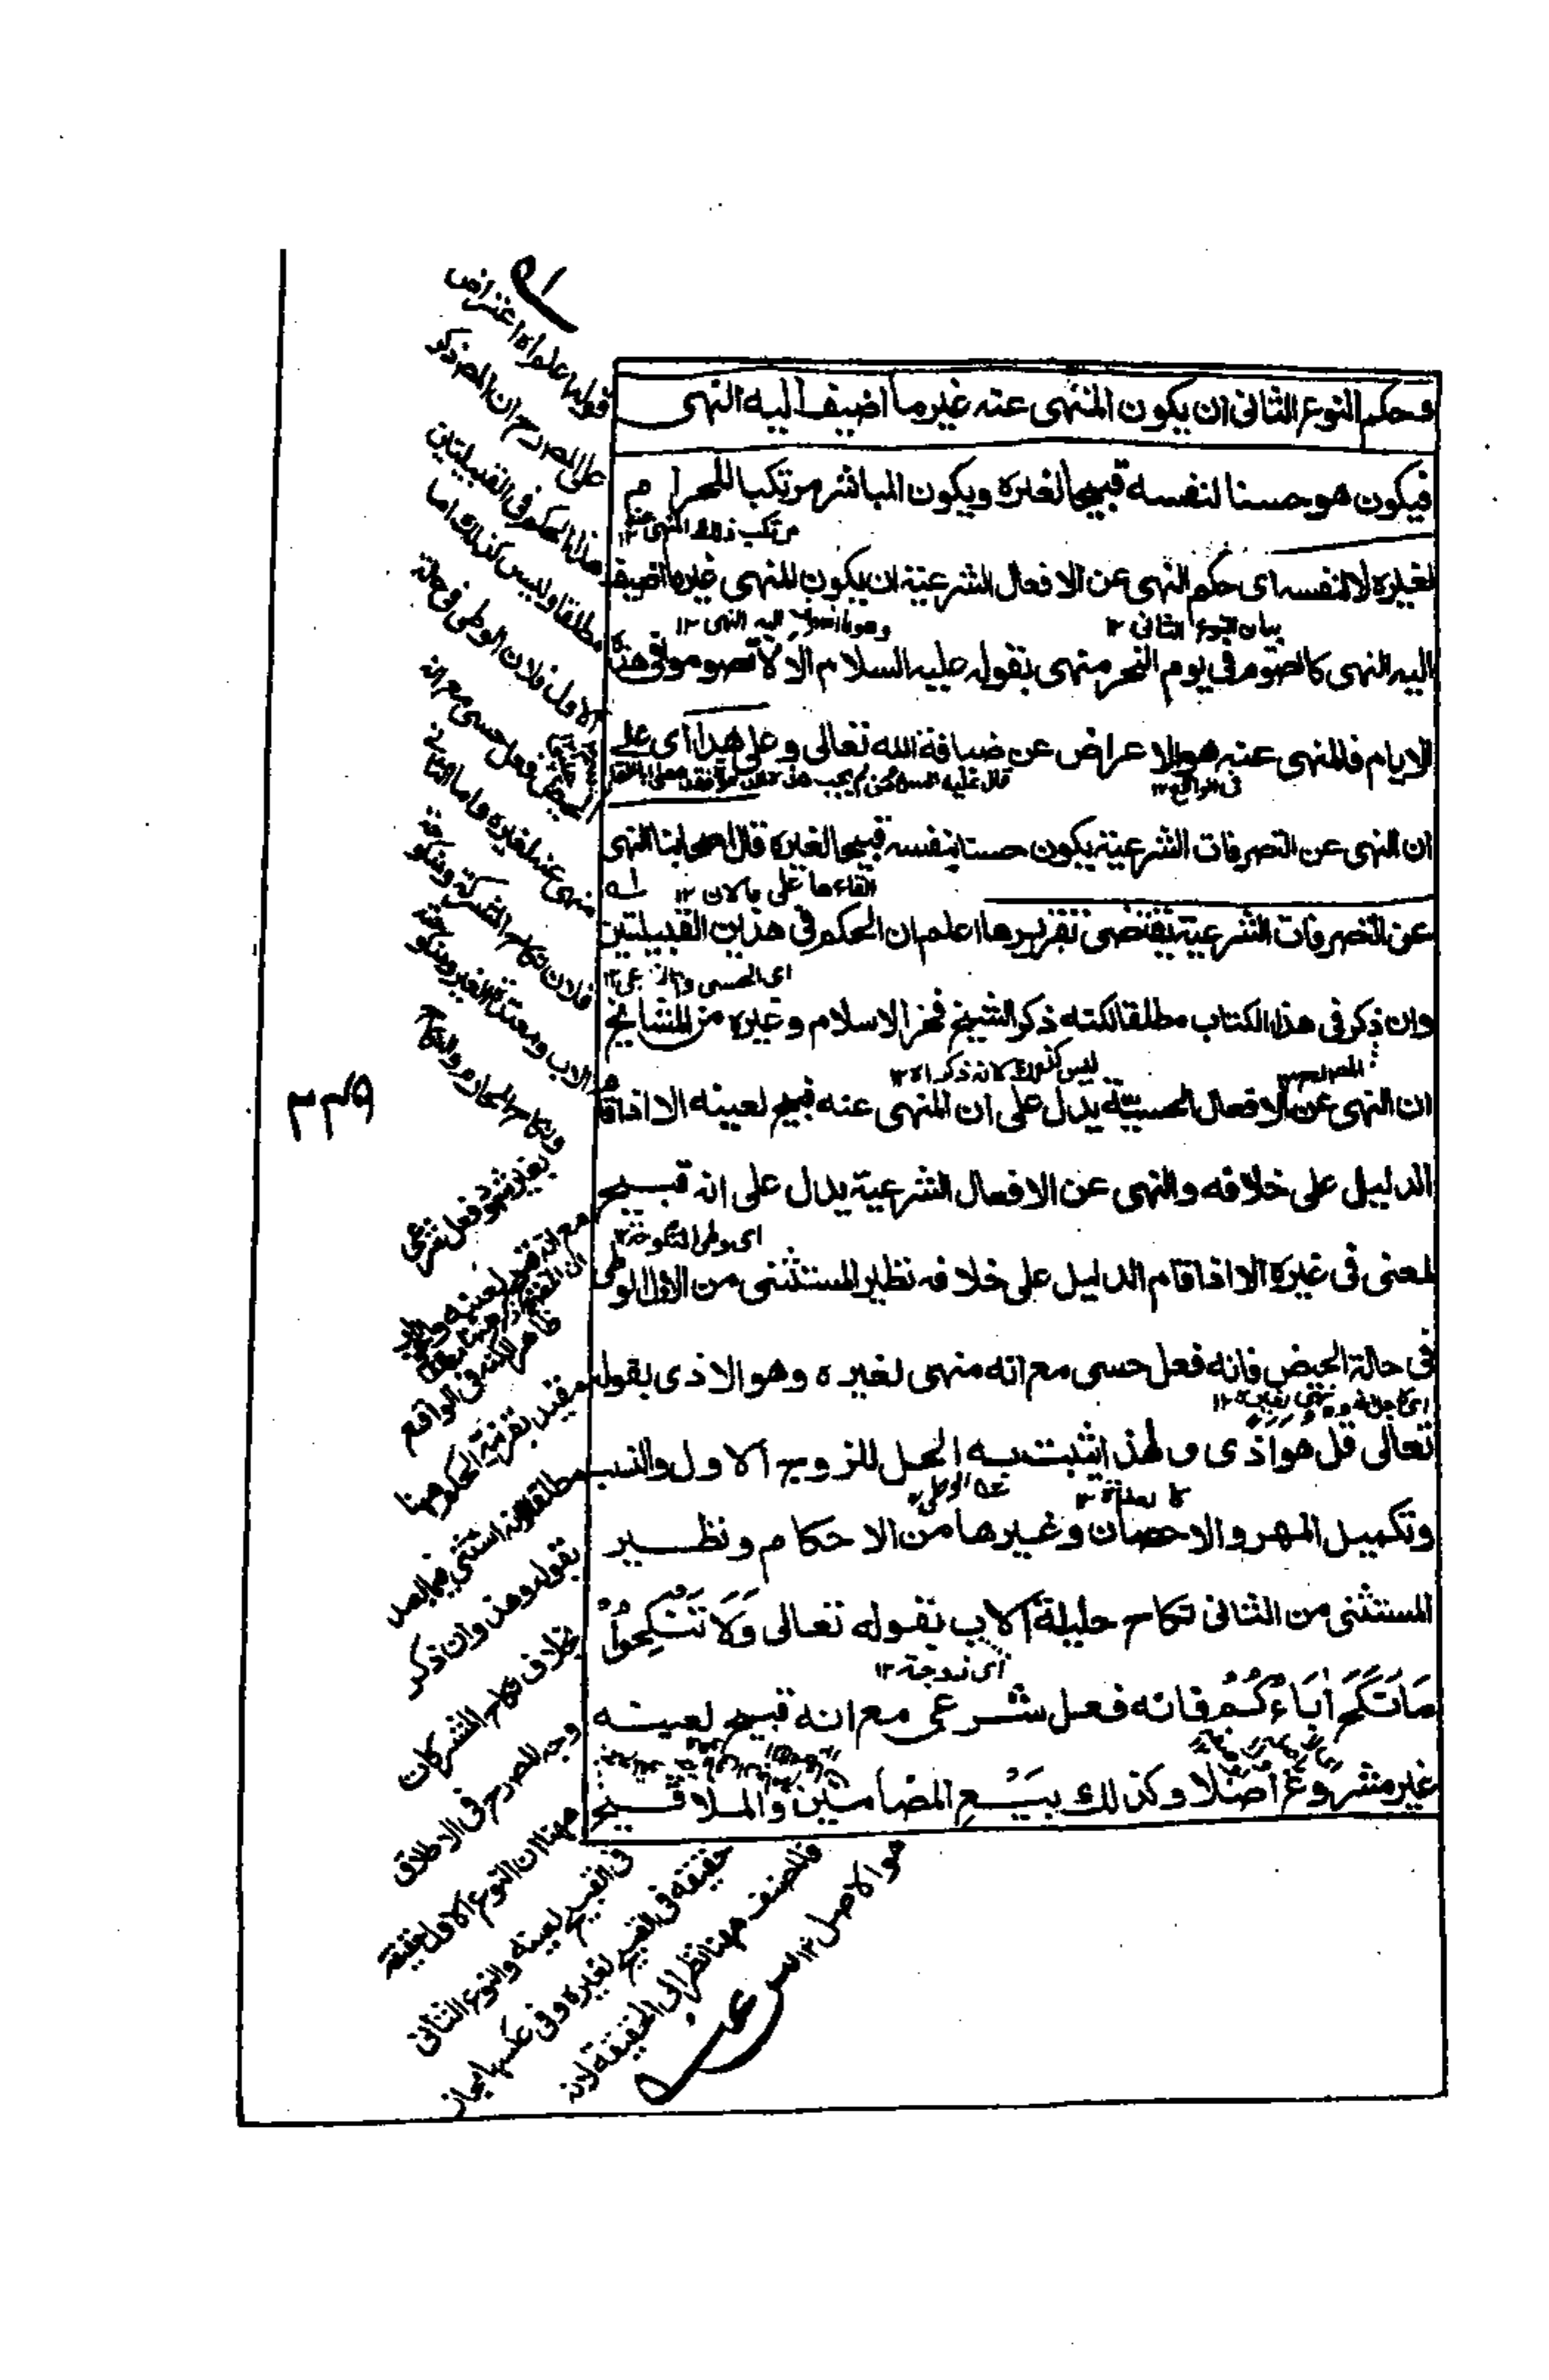 وحكم النوع الثاني ان يكون المنهى عنه غير ما اضيف اليه النهى
فيكون هو حسنا لنفسه قبيحا لغيره ويكون المباشر مرتكبا للحرام
مرتكب ذلك المنهى عنه ١٢
لغيره لا لنفسه اى حكم النهى عن الافعال الشرعية ان يكون للنهى غير ما اضيف
بيان النوع الثاني ١٢
وهو ما اضيف اليه النهى ١٢
اليه النهى كالصوم في يوم النحر منهى بقوله عليه السلام الا لا تصوموا في هذه
الايام فالمنهى عنه هو الاعراض عن ضيافة الله تعالى وعلى هذا اى على
في الواقع ١٢
ان النهى عن التصرفات الشرعية يكون حسنا بنفسه قبيحا لغيره قال اصحابنا النهى
عن التصرفات الشرعية يقتضى تقريرها اعلم ان الحكم في هذين القبيلتين
اى الحسى والشرعى ١٢
وان ذكر في هذا الكتاب مطلقا لكنه ذكر الشيخ فخر الاسلام وغيره من المشايخ
ليس كذلك لانه ذكر اه ١٢
ان النهى عن الافعال الحسية يدل على ان المنهى عنه قبيح لعينه الا اذا قام
الدليل على خلافه والنهى عن الافعال الشرعية يدل على انه قبيح
لمعنى في غيره الا اذا قام الدليل على خلافه نظير المستثنى من الاول الوطى
في حالة الحيض فانه فعل حسى مع انه منهى لغيره وهو الاذى بقوله
تعالى قل هو اذى ولهذا يثبت به الحل للزوج الاول والنسب
وتكميل المهر والاحصان وغيرها من الاحكام ونظير
المستثنى من الثاني نكاح حليلة الاب بقوله تعالى وَلَا تَنْكِحُوْا
اى زوجة ١٢
مَا نَكَحَ اٰبَاءُكُمْ فانه فعل شرعى مع انه قبيح لعينه
غير مشروع اصلا وكذلك بيع المضامين والملاقيح
قوله اعلم اه اعتراض
على المصرح ان المص ذكر
هذا الحكم في القبيلتين
مطلقا وليس كذلك اما
الاول فلان الوطى في حالة
الحيض فعل حسى مع انه
منهى عنه لغيره واما الثاني
فلان نكاح المشركة ومنكوحة
الاب ومعتدة الغير ومنكوحته
ونكاح المحارم والنكاح
بغير شهود فعل شرعى
مع انه قبيح لعينه
ظاهر لكنه في الواقع
مقيد بقرينة الحكم ههنا
مطلقا لانه استثنى فيما بعد
بقوله وهذا وان ذكر
بخلاف نكاح المشركات
وجه المصرح في الاطلاق
ههنا ان النوع الاول حقيقة
في القبيح لعينه والنوع الثاني
حقيقة في القبيح لغيره وفي عكسهما مجاز
فالمصنف ههنا نظر الى الحقيقة لانه
هو الاصل ١٢
٣٣٩